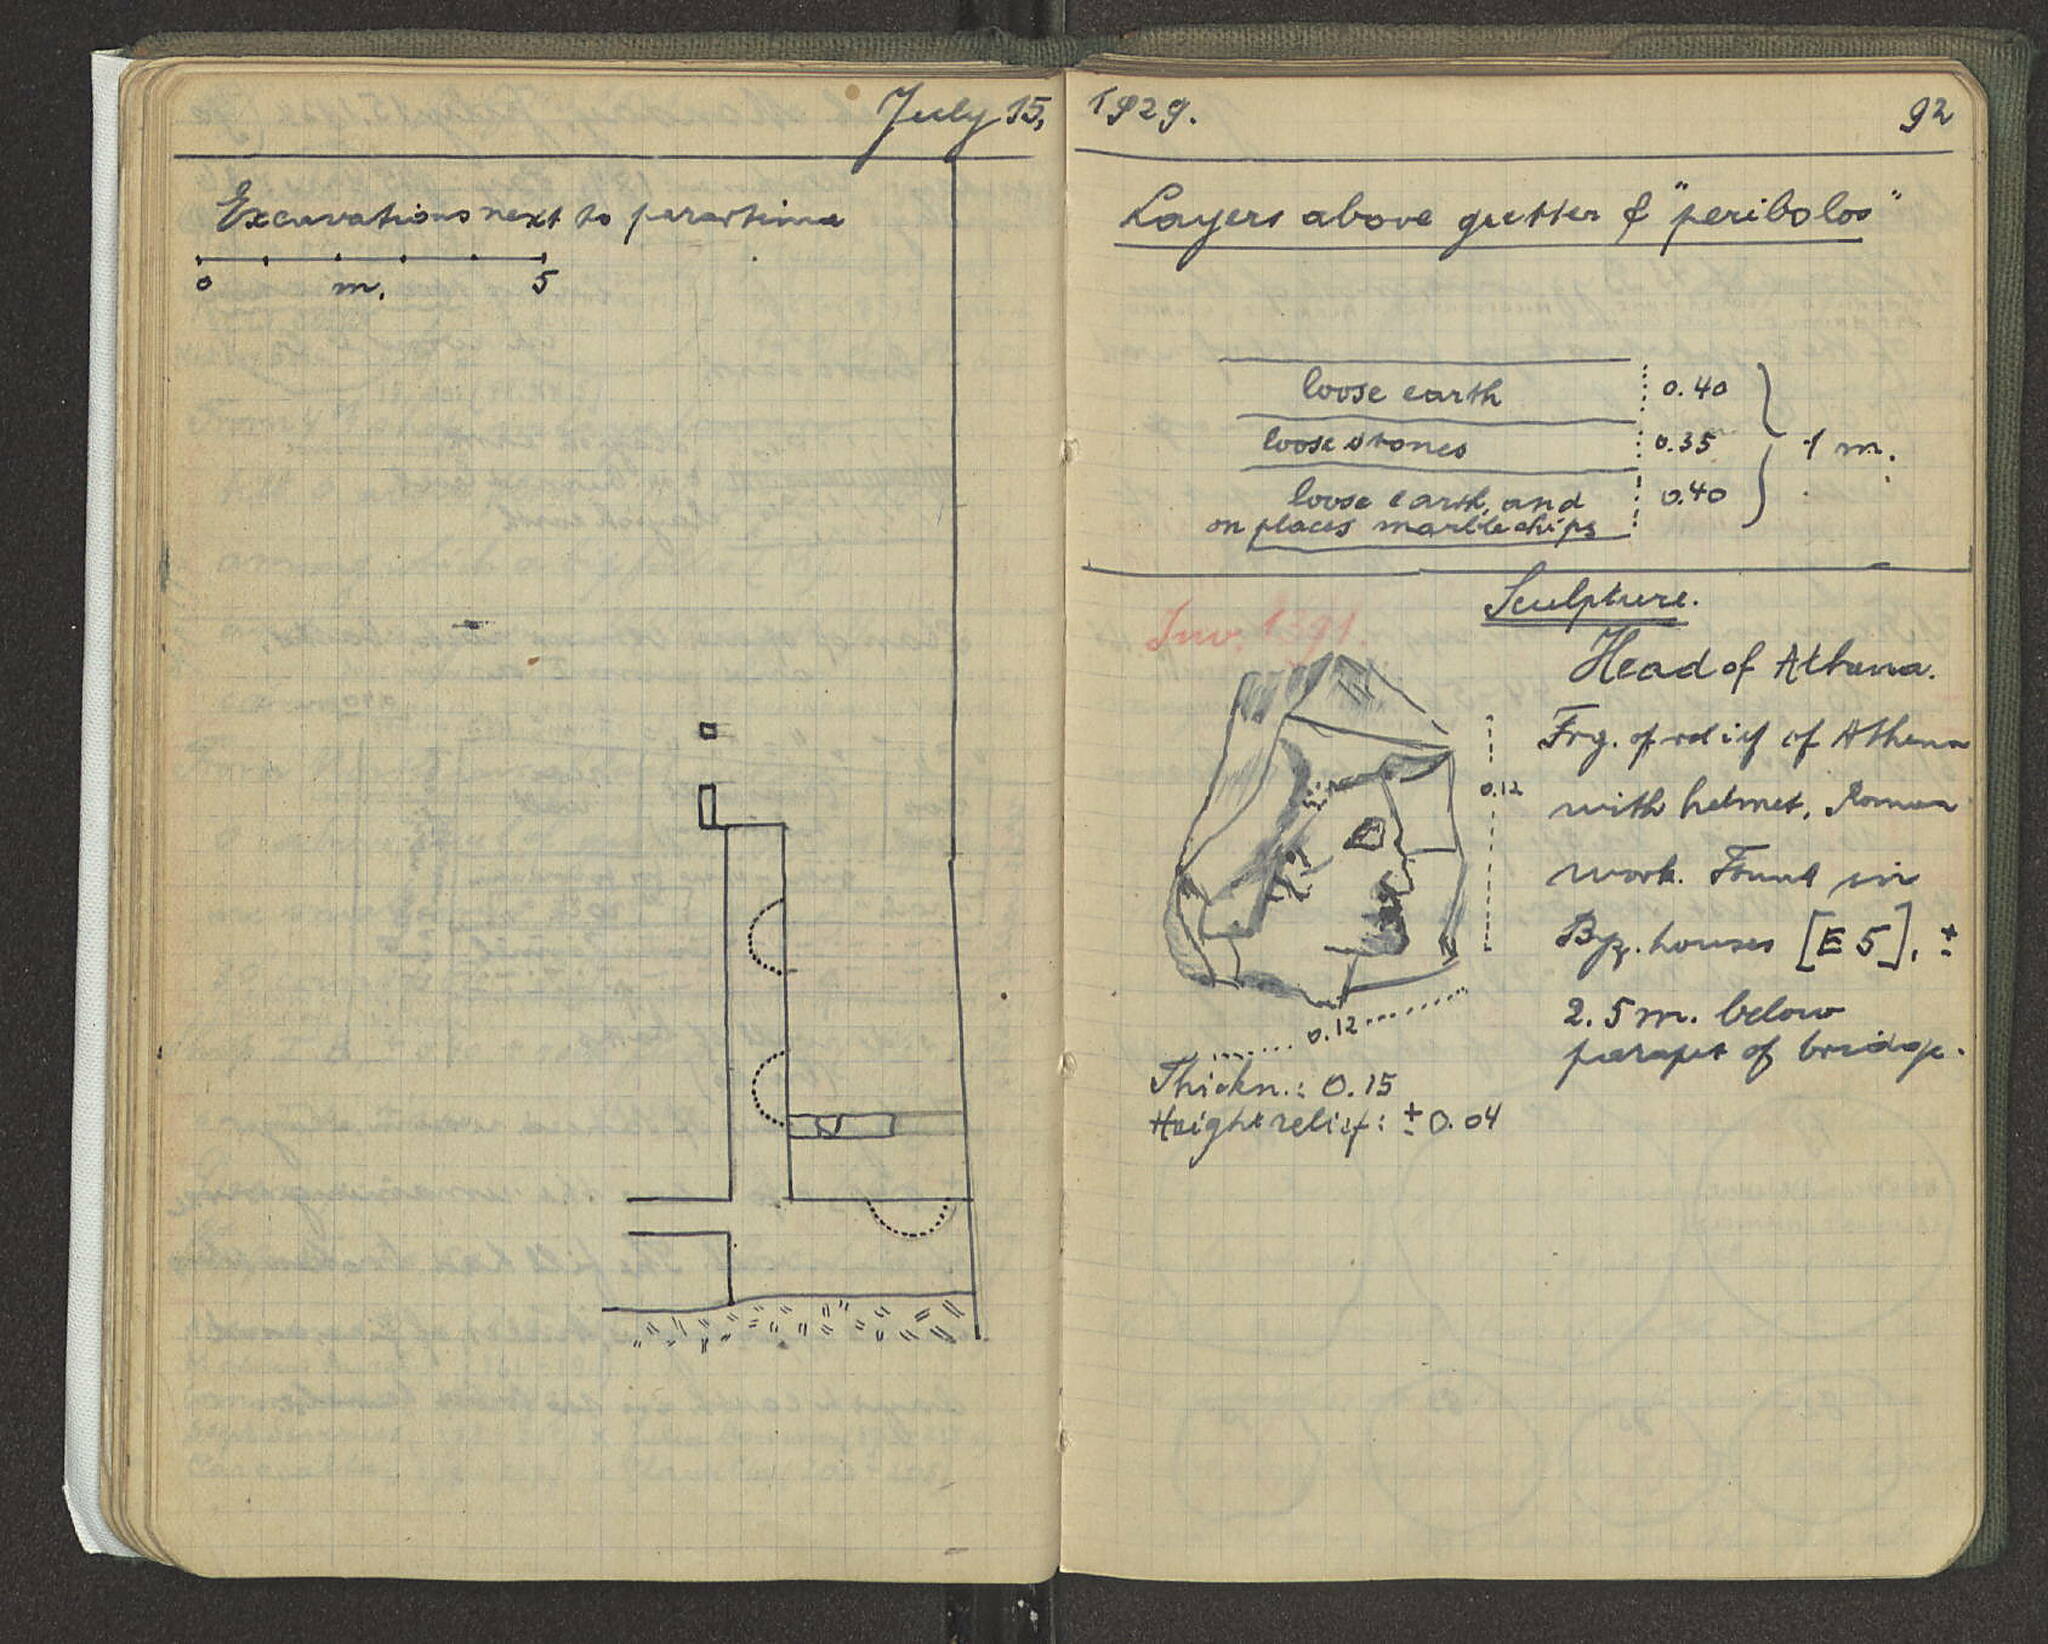 July 15,
Excavations next to
0 m. 5
1929. 92
Layers above gutter & "peribolos"
loose earth 0.40
loose stones 0.35
1 m.
loose earth, and 0.40
on places marble chips
Sculpture.
Inv. 1391.
Head of Athena.
Frg. of relief of Athena
with helmet, Roman
0.12
work. Found in
Byz. houses [E 5], ±
2.5 m. below
parapet of bridge.
0.12
Thickn.: 0.15
Height relief: ± 0.04